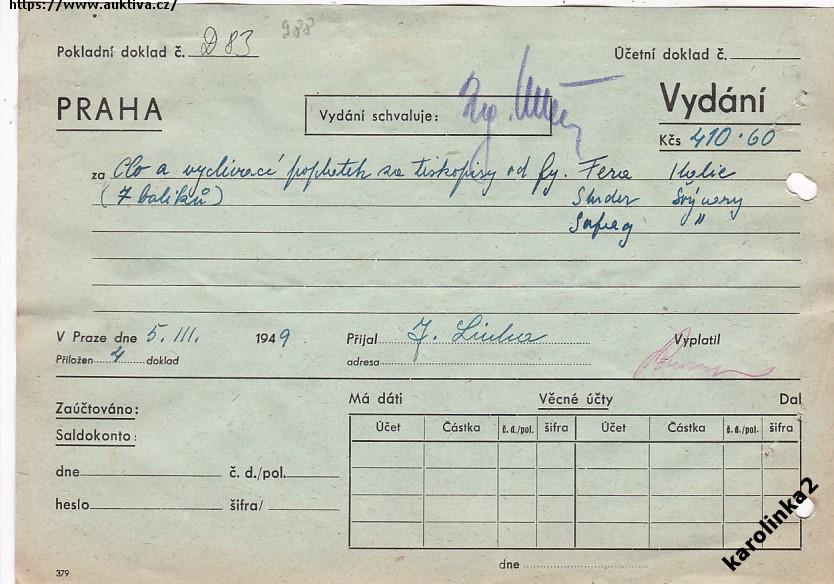 https://www.auktiva.cz/
Pokladní doklad č. D 83
988
Účetní doklad č.
PRAHA
Vydání schvaluje: Ing.
Vydání
Kčs 410·60
za Clo a vyclívací poplatek za tiskopisy od fy. Fera Italie
(7 balíků) Studer Švýcary
"
V Praze dne 5. III. 1949 Přijal J. Vyplatil
Přiložen 4 doklad adresa
Zaúčtováno: Má dáti Věcné účty Dal
Saldokonto: Účet Částka č. d./pol. šifra Účet Částka č. d./pol. šifra
dne č. d./pol.
heslo šifra/
dne
379
karolinka2